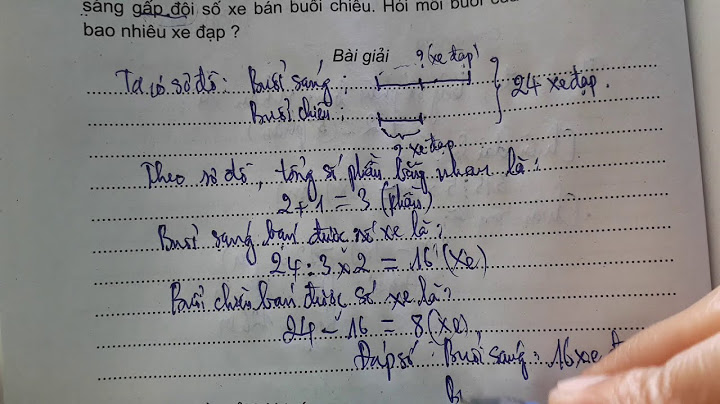 sáng gấp đôi số xe bán buổi chiều. Hỏi mỗi buổi
bao nhiêu xe đạp ?
Bài giải
? (xe đạp)
Ta có sơ đồ: Buổi sáng:
24 xe đạp.
Buổi chiều:
? xe đạp
Theo sơ đồ, tổng số phần bằng nhau là:
2 + 1 = 3 (phần)
Buổi sáng bán được số xe là:
24 : 3 x 2 = 16 (xe)
Buổi chiều bán được số xe là:
24 - 16 = 8 (xe)
Đáp số: Buổi sáng: 16 xe